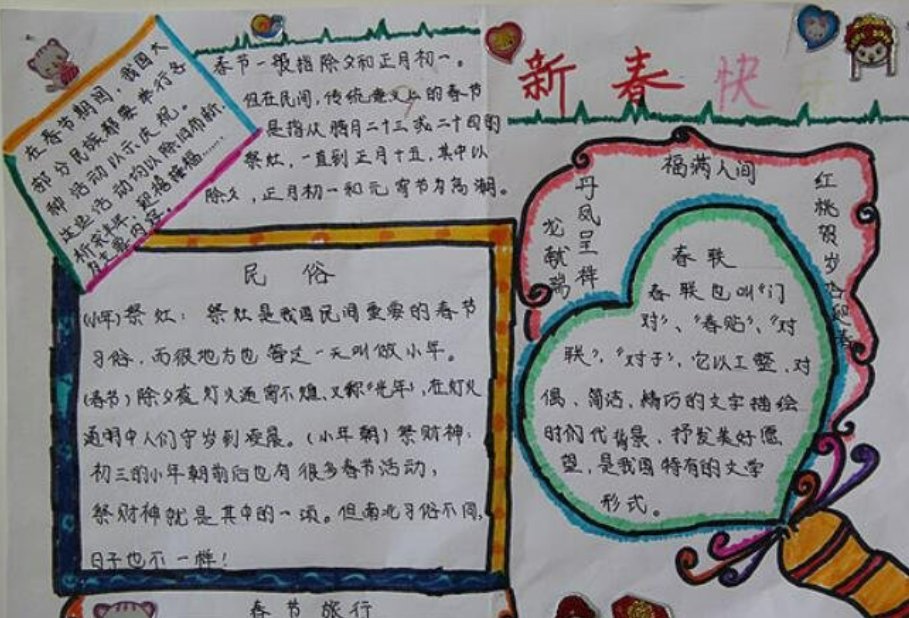 在春节期间，我国大
部分民族都要举行各
种活动以示庆祝。
这些活动均以除旧布新、
祈求丰年、迎禧接福……
为主要内容。
春节一般指除夕和正月初一。
但在民间，传统意义上的春节
是指从腊月二十三或二十四的
祭灶，一直到正月十五，其中以
除夕，正月初一和元宵节为高潮。
新春快
福满人间
丹凤呈祥
龙献瑞
红桃贺岁
民俗
(小年)祭灶：祭灶是我国民间重要的春节
习俗，而很地方也管这一天叫做小年。
(春节)除夕夜灯火通宵不熄，又称“光年”，在灯火
通明中人们守岁到凌晨。(小年朝)祭财神：
初三的小年朝前后也有很多春节活动，
祭财神就是其中的一项。但南北习俗不同，
日子也不一样！
春联
春联也叫“门
对”、“春贴”、“对
联”、“对子”，它以工整、对
偶、简洁、精巧的文字描绘
时代背景，抒发美好愿
望，是我国特有的文学
形式。
春节旅行